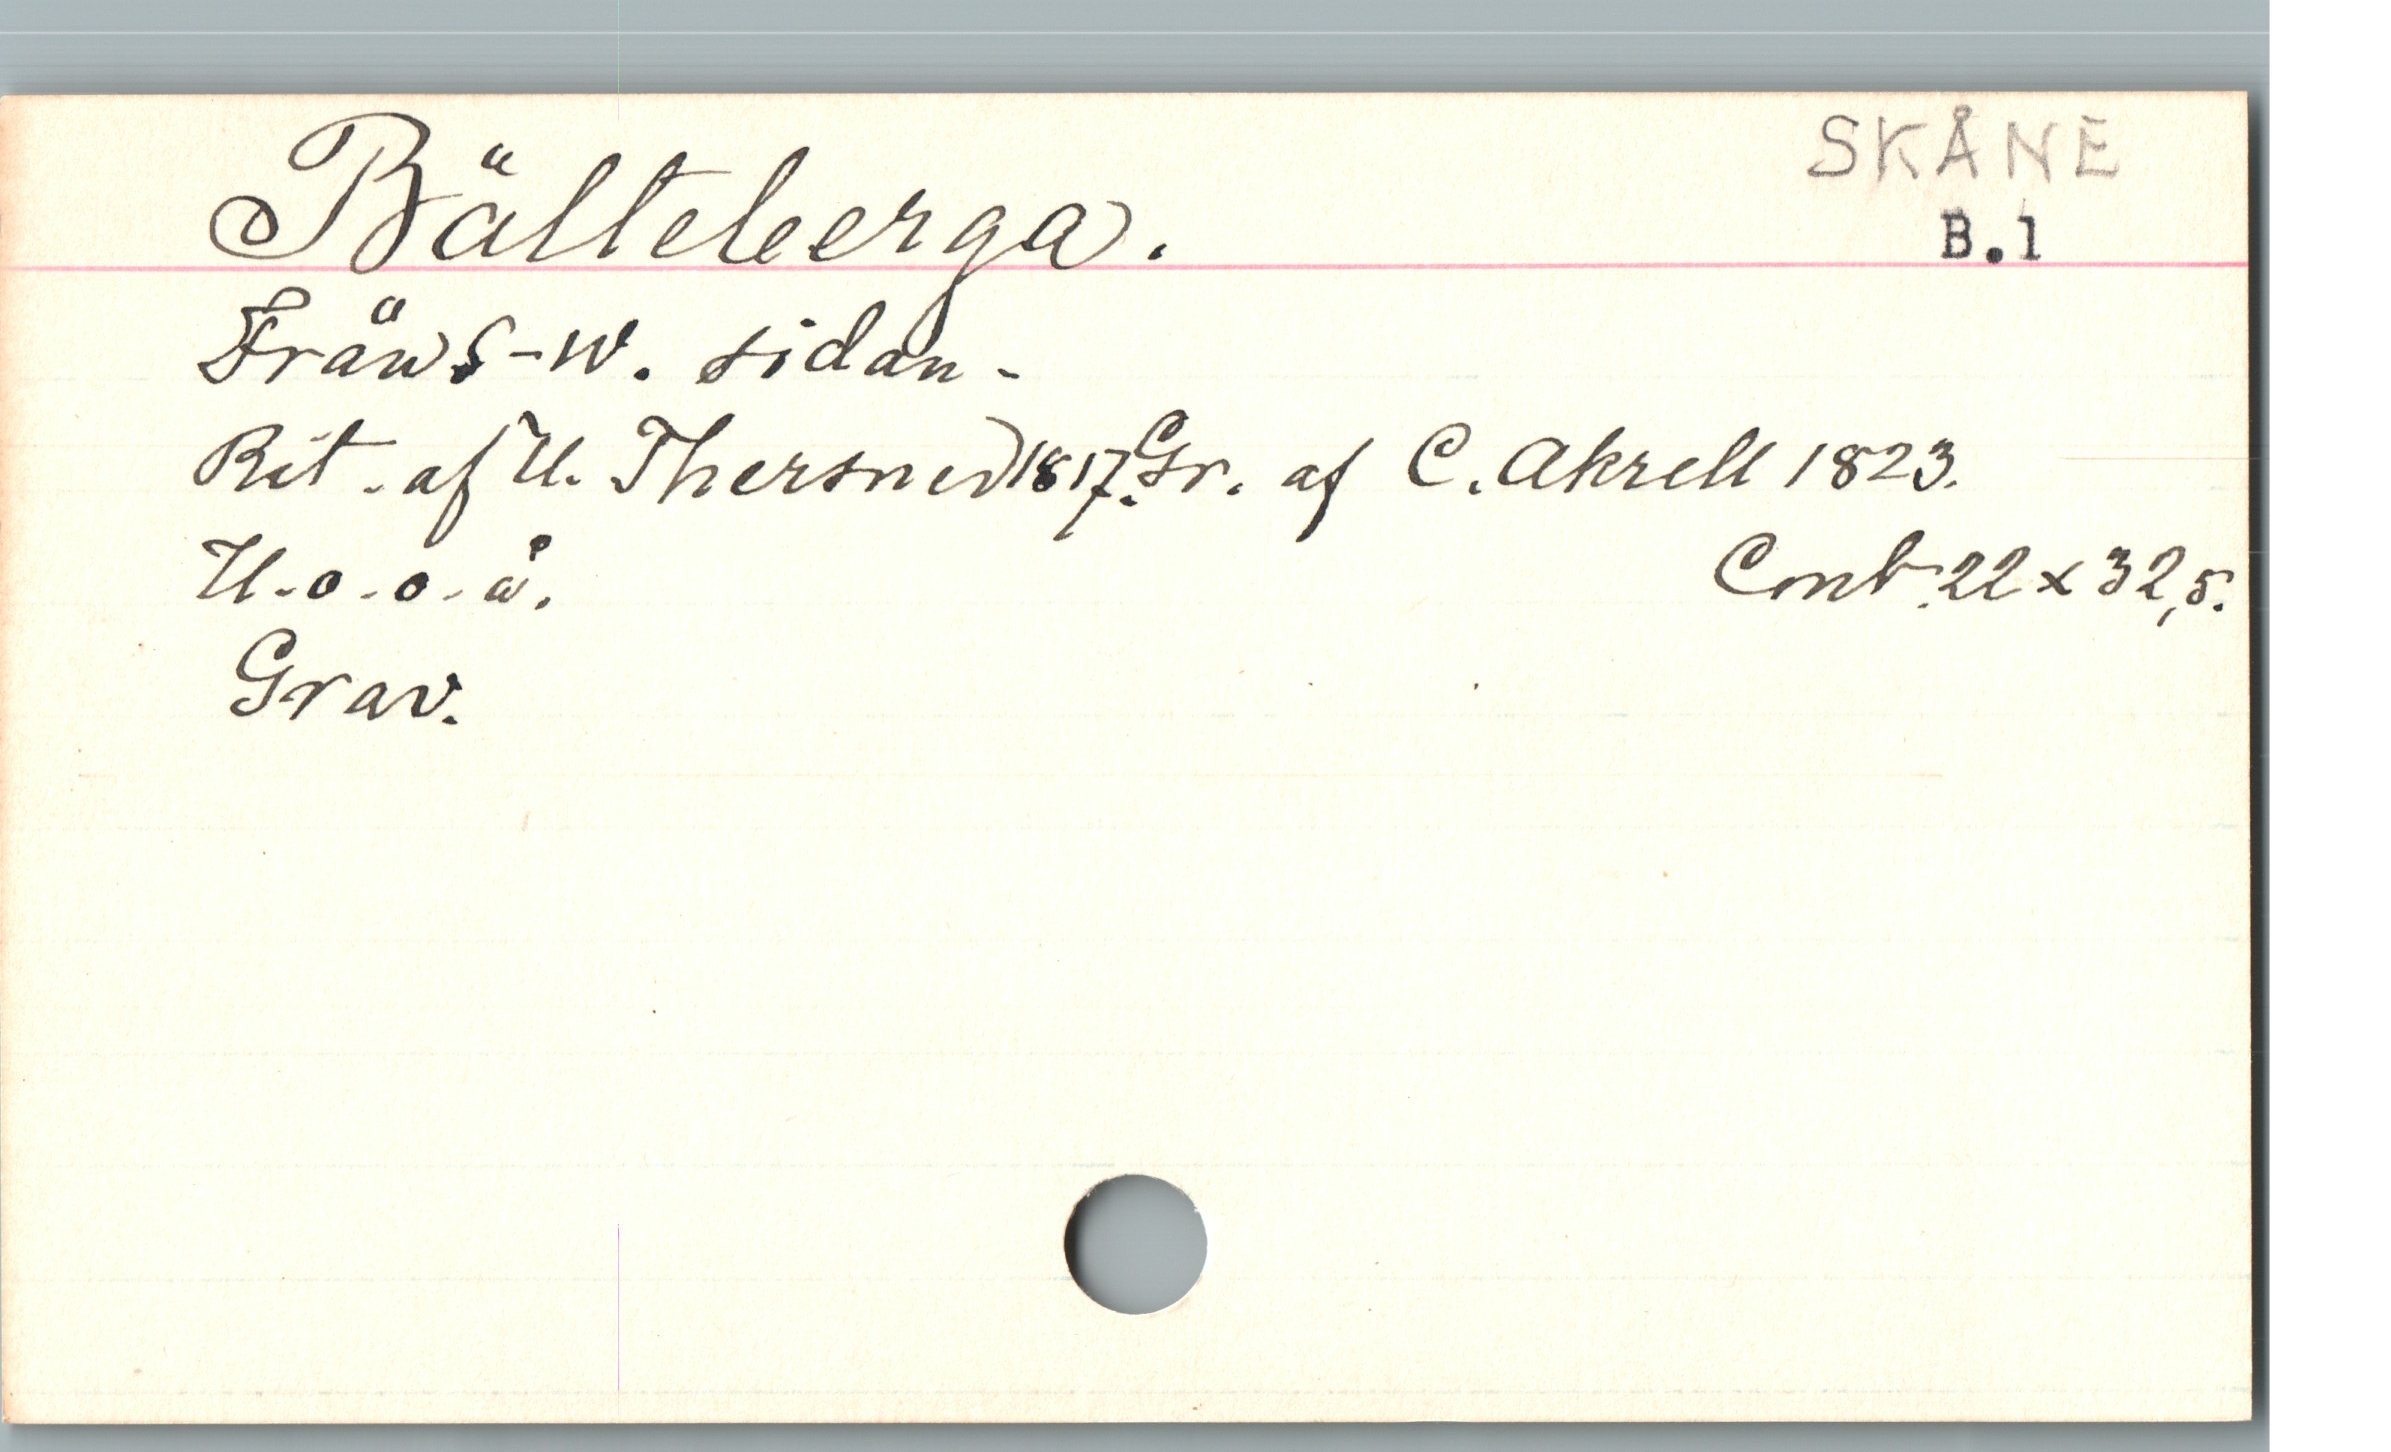 Bälteberga.
SKÅNE
B.1
Från S-W. sidan.
Rit. af U. Thersner 1817. Gr. af C. Akrell 1823.
U. o. o. å.
Cont. 22 x 32,5.
Grav.